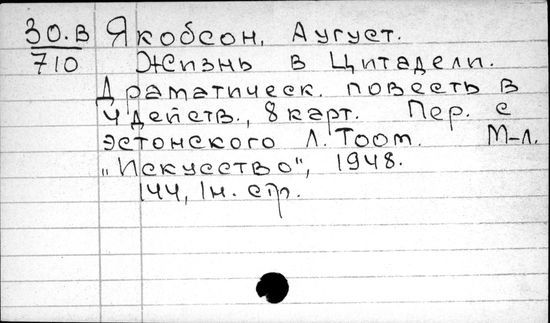 30.В Якобсон, Август.
710 Жизнь в Цитадели.
Драматическ. повесть в
4 действ., 8 карт. Пер. с
эстонского Л. Тоом. М-л.
„Искусство", 1948.
144, 1н. стр.